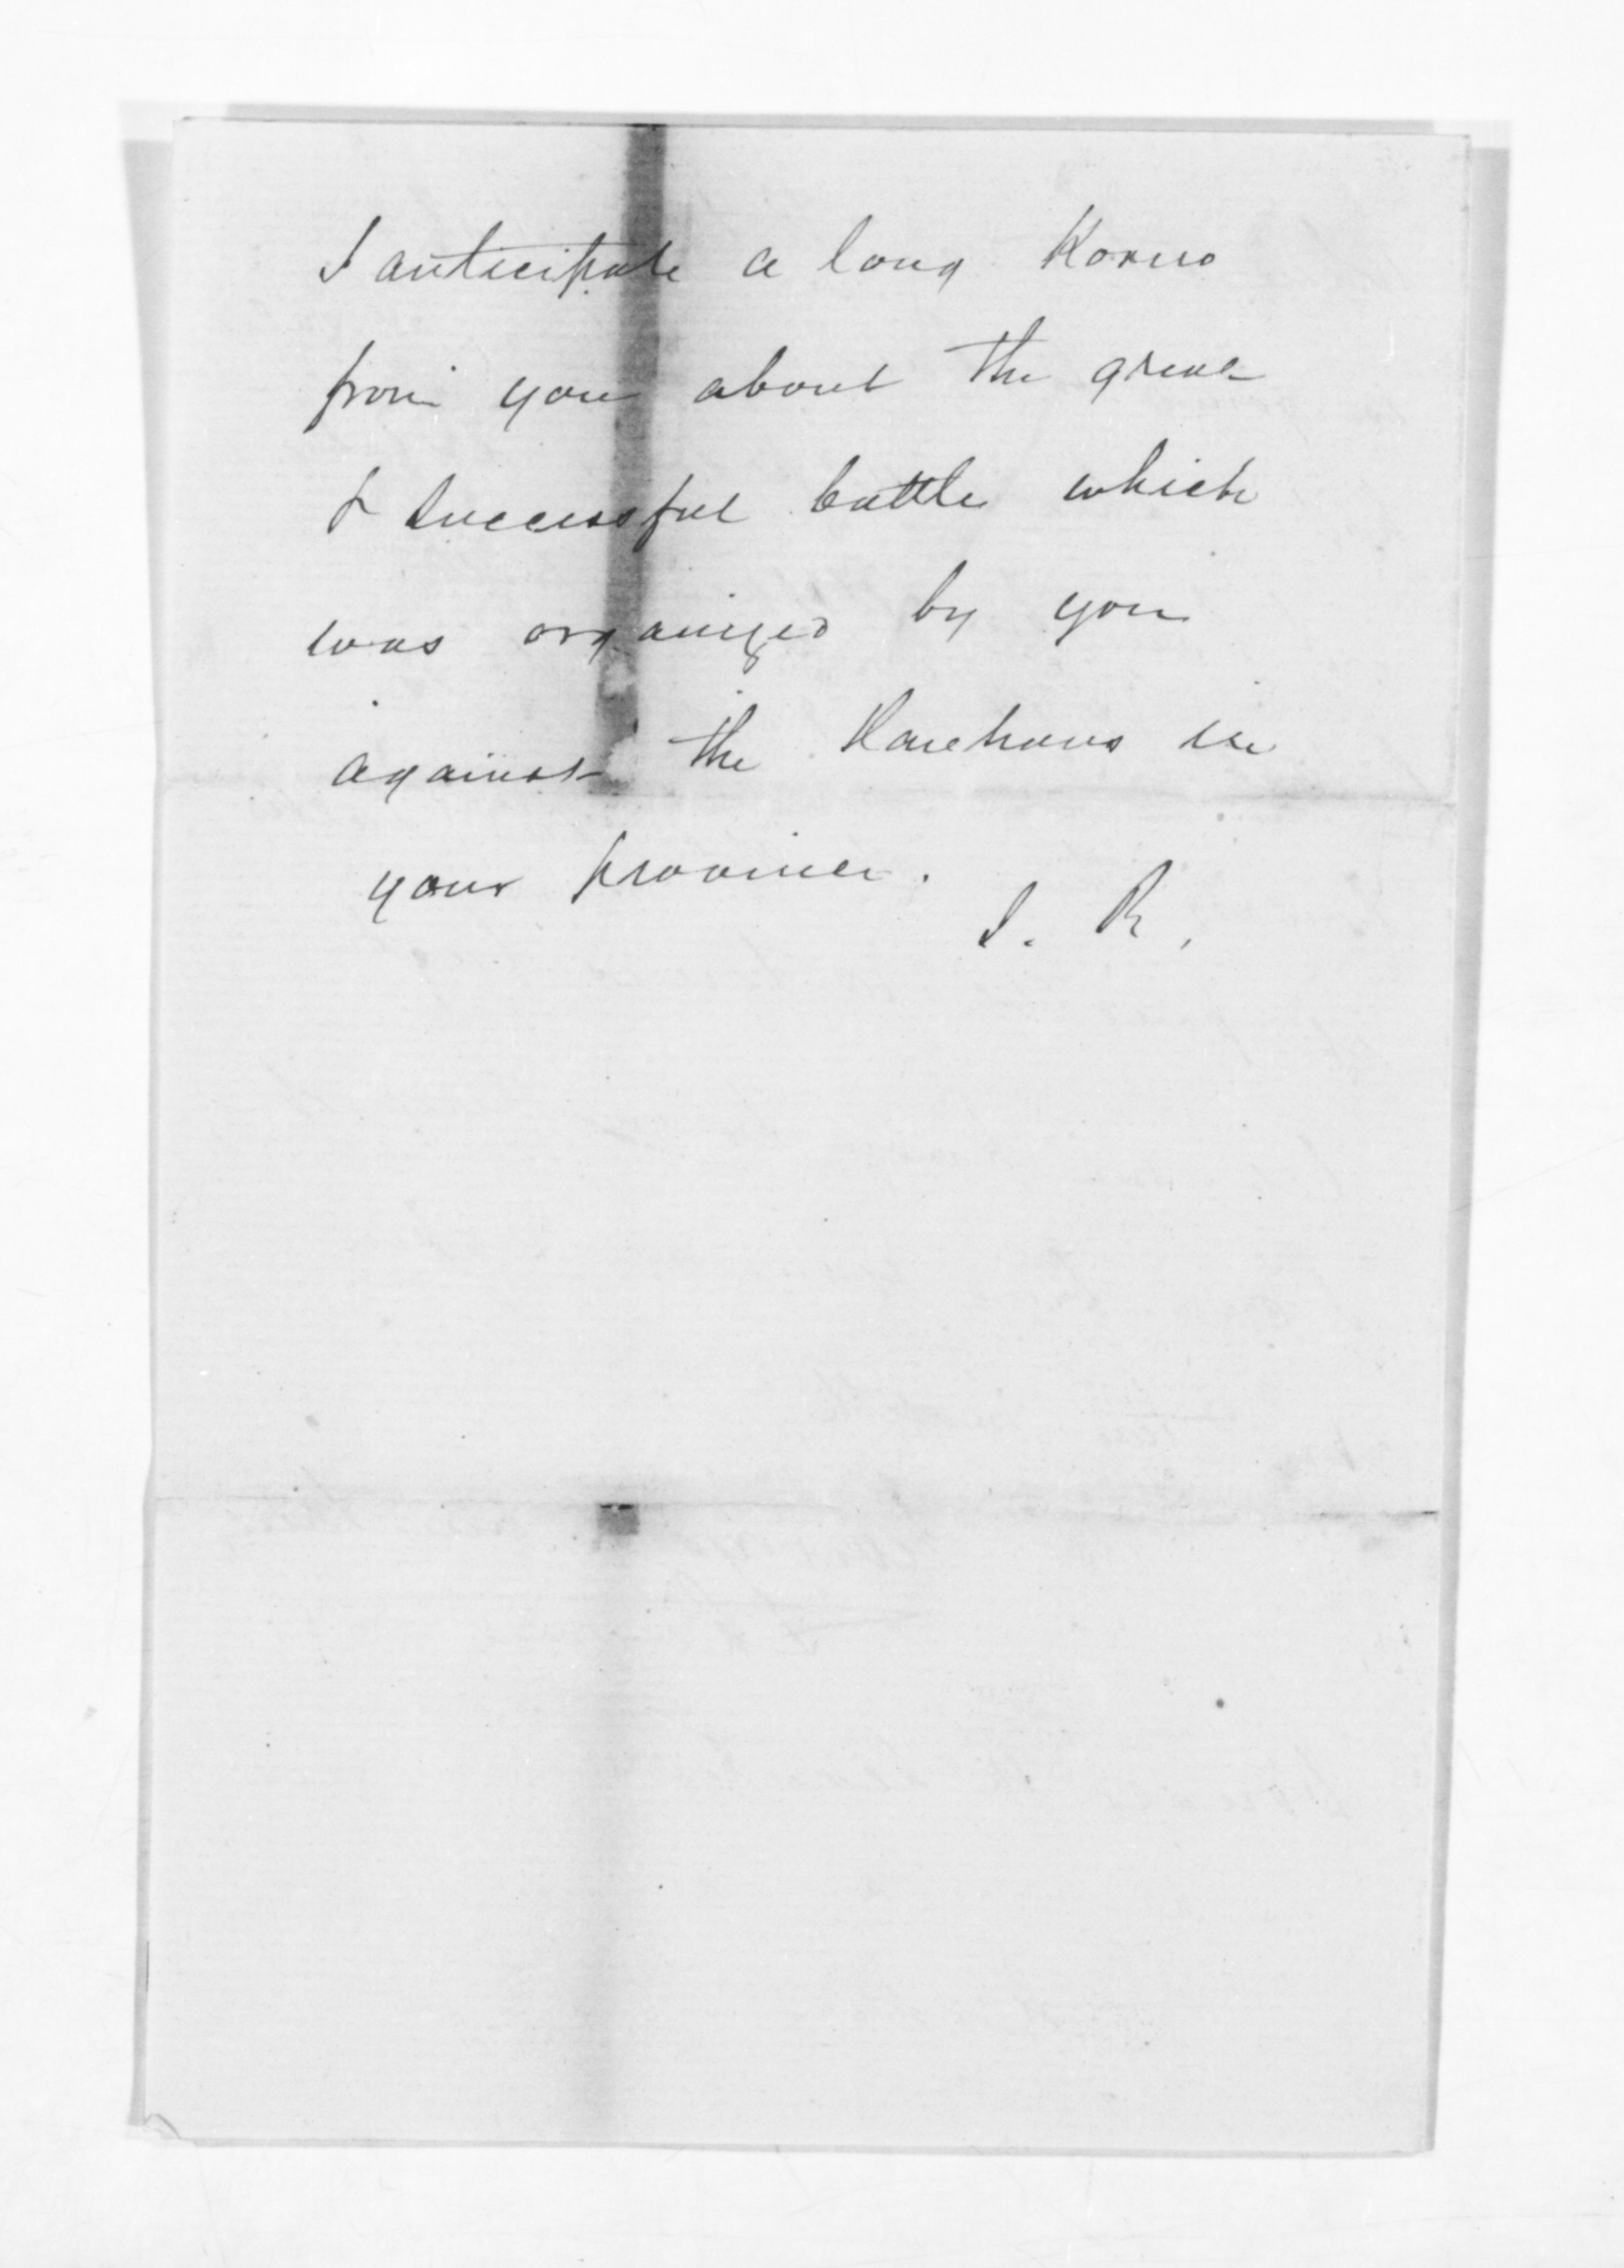 I anticipate a long Korero
from you about the great
& successful battle which
was organized by you
against the Hauhaus in
your province.
I. R.